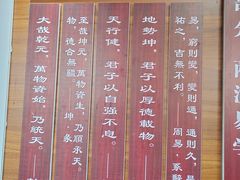 易，窮則變，變則通，通則久，是
祐之，吉無不利。 周易·系辭
地勢坤，君子以厚德載物。
天行健，君子以自强不息。
至哉坤元，萬物資生，乃順承天。
物，德合無疆。 坤·彖
大哉乾元，萬物資始，乃統天。